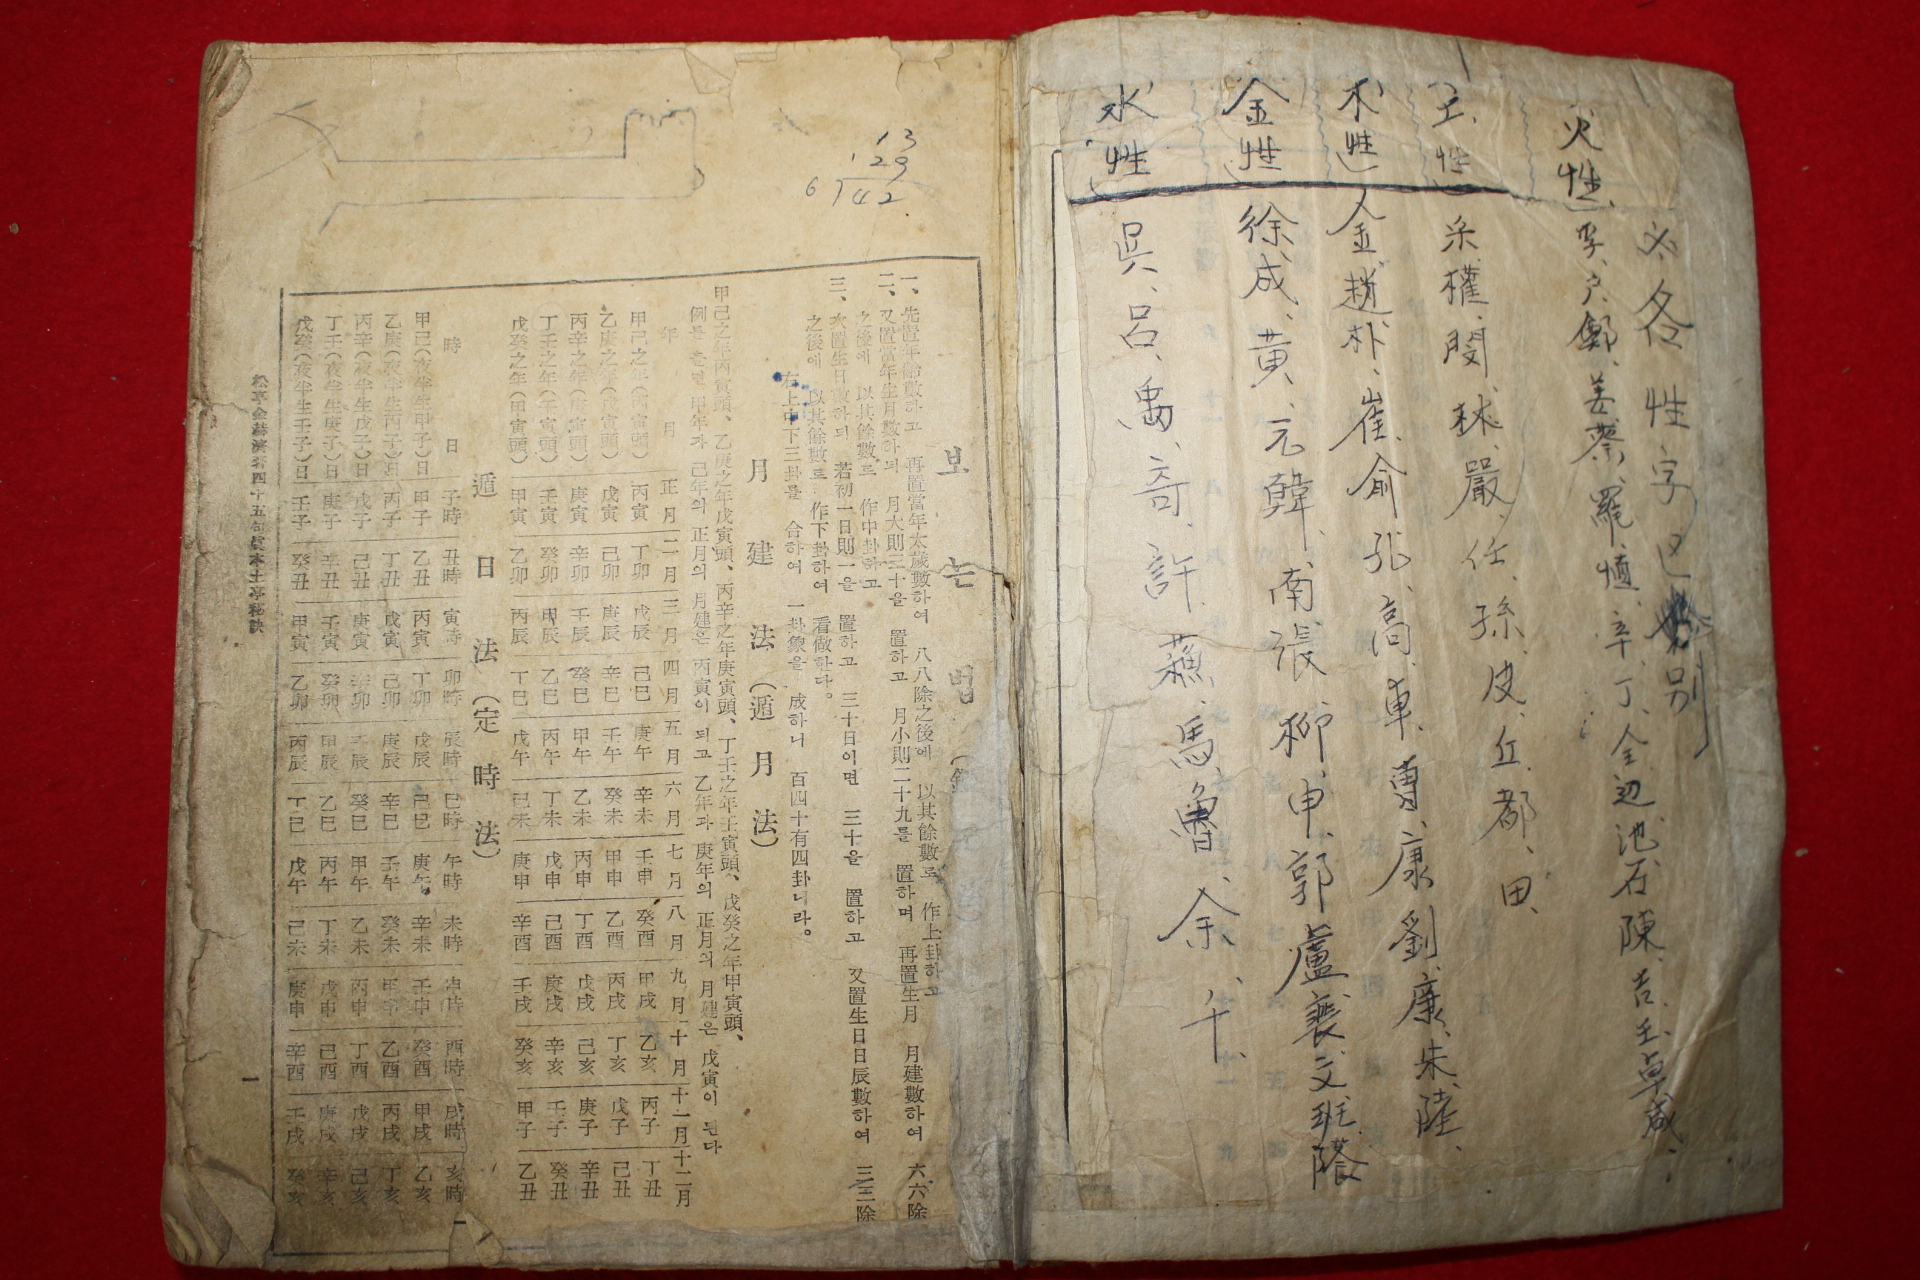 各性字
火性
姜、蔡、羅、愼、辛、丁、全、辺、池、石、陳、吉、王、卓、咸、
土性
宋、權、閔、林、嚴、任、孫、皮、丘、都、田、
木性
金、趙、朴、崔、兪、孔、高、車、曺、康、劉、廉、朱、陸、
金性
徐、成、黃、元、韓、南、張、柳、申、郭、盧、裵、文、班
水性
吳、呂、禹、奇、許、蘇、馬、魯、余、千、
13
29
42
보는법
一、先置年齡數하고 再置當年太歲數하여 八八除之後에 以其餘數로 作上卦하고
二、又置當年生月數하되 月大則三十을 置하고 月小則二十九를 置하며 再置生月 月建數하여 六六除
之後에 以其餘數로 作中卦하고
三、次置生日數하되 若初一日則一을 置하고 三十日이면 三十을 置하고 又置生日日辰數하여 三三除
之後에 以其餘數로 作下卦하여 看做한다。
右上中下三卦를 合하여 一卦象을 成하니 百四十有四卦니라。
月建法(遁月法)
甲己之年丙寅頭、乙庚之年戊寅頭、丙辛之年庚寅頭、丁壬之年壬寅頭、戊癸之年甲寅頭、
例를 들면 甲年과 己年의 正月의 月建은 丙寅이 되고 乙年과 庚年의 正月의 月建은 戊寅이 된다
年 月 正月 二月 三月 四月 五月 六月 七月 八月 九月 十月 十一月 十二月
甲己之年(丙寅頭) 丙寅 丁卯 戊辰 己巳 庚午 辛未 壬申 癸酉 甲戌 乙亥 丙子 丁丑
乙庚之年(戊寅頭) 戊寅 己卯 庚辰 辛巳 壬午 癸未 甲申 乙酉 丙戌 丁亥 戊子 己丑
丙辛之年(庚寅頭) 庚寅 辛卯 壬辰 癸巳 甲午 乙未 丙申 丁酉 戊戌 己亥 庚子 辛丑
丁壬之年(壬寅頭) 壬寅 癸卯 甲辰 乙巳 丙午 丁未 戊申 己酉 庚戌 辛亥 壬子 癸丑
戊癸之年(甲寅頭) 甲寅 乙卯 丙辰 丁巳 戊午 己未 庚申 辛酉 壬戌 癸亥 甲子 乙丑
遁日法(定時法)
時 日 子時 丑時 寅時 卯時 辰時 巳時 午時 未時 申時 酉時 戌時 亥時
甲己(夜半生甲子)日 甲子 乙丑 丙寅 丁卯 戊辰 己巳 庚午 辛未 壬申 癸酉 甲戌 乙亥
乙庚(夜半生丙子)日 丙子 丁丑 戊寅 己卯 庚辰 辛巳 壬午 癸未 甲申 乙酉 丙戌 丁亥
丙辛(夜半生戊子)日 戊子 己丑 庚寅 辛卯 壬辰 癸巳 甲午 乙未 丙申 丁酉 戊戌 己亥
丁壬(夜半生庚子)日 庚子 辛丑 壬寅 癸卯 甲辰 乙巳 丙午 丁未 戊申 己酉 庚戌 辛亥
戊癸(夜半生壬子)日 壬子 癸丑 甲寅 乙卯 丙辰 丁巳 戊午 己未 庚申 辛酉 壬戌 癸亥
一